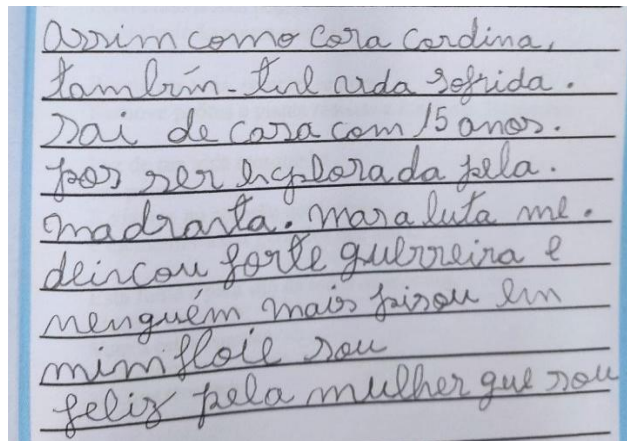 assim como Cora Cordina,
tambrím-tive vida sofrida.
sai de casa com 15 anos.
pos ser explorada pela.
madrasta. mas a luta me.
deixou forte guerreira e
nenguém mais pisou em
mim floie sou
feliz pela mulher que sou